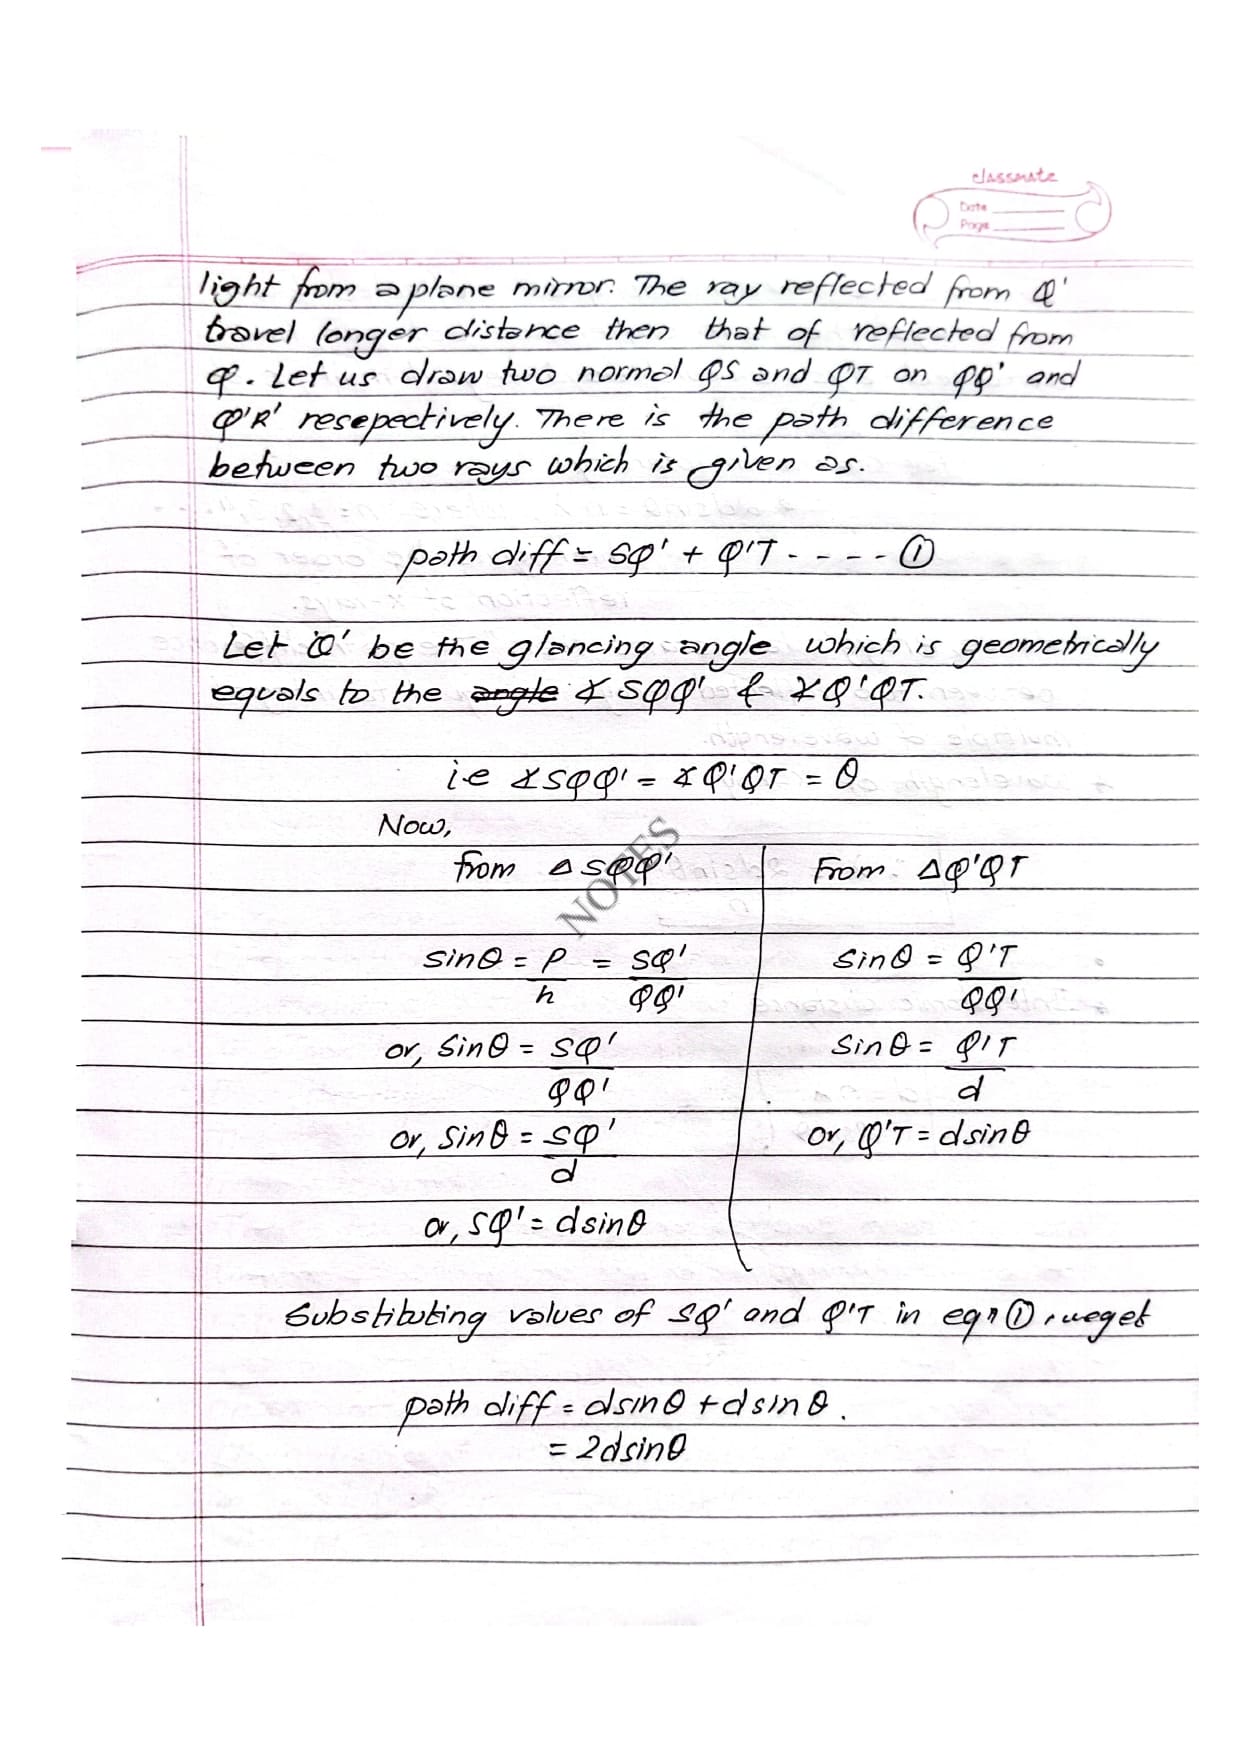 classmate
Date
Page
light from a plane mirror. The ray reflected from Q'
travel longer distance then that of reflected from
Q. Let us draw two normal QS and QT on PQ' and
Q'R' resepectively. There is the path difference
between two rays which is given as.
path diff = SQ' + Q'T - - - - ①
Let 'θ' be the glancing angle which is geometrically
equals to the angle ∡ SQQ' & ∡ Q'QT.
i.e ∡SQQ' = ∡Q'QT = θ
Now,
from △SQQ'
sinθ = P/h = SQ'/QQ'
or, sinθ = SQ'/QQ'
or, sinθ = SQ'/d
or, SQ' = dsinθ
From △Q'QT
sinθ = Q'T/QQ'
sinθ = Q'T/d
or, Q'T = dsinθ
Substituting values of SQ' and Q'T in eqn ①, we get
path diff = dsinθ + dsinθ.
= 2dsinθ
NOTES